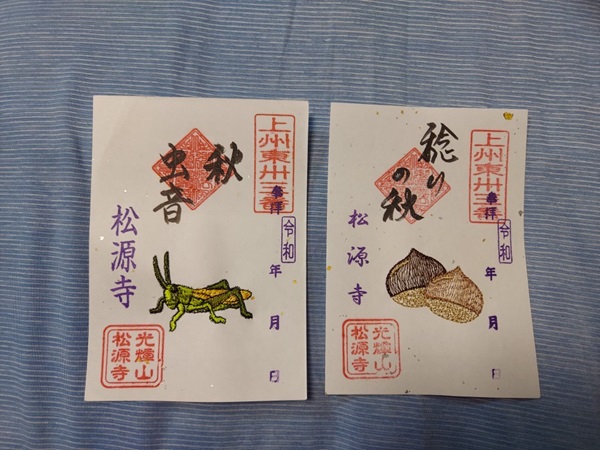 上州東卅三番
参拝
令和
年
月
日
秋
虫音
松源寺
光輝山
松源寺
上州東卅三番
参拝
令和
年
月
日
稔り
の秋
松源寺
光輝山
松源寺